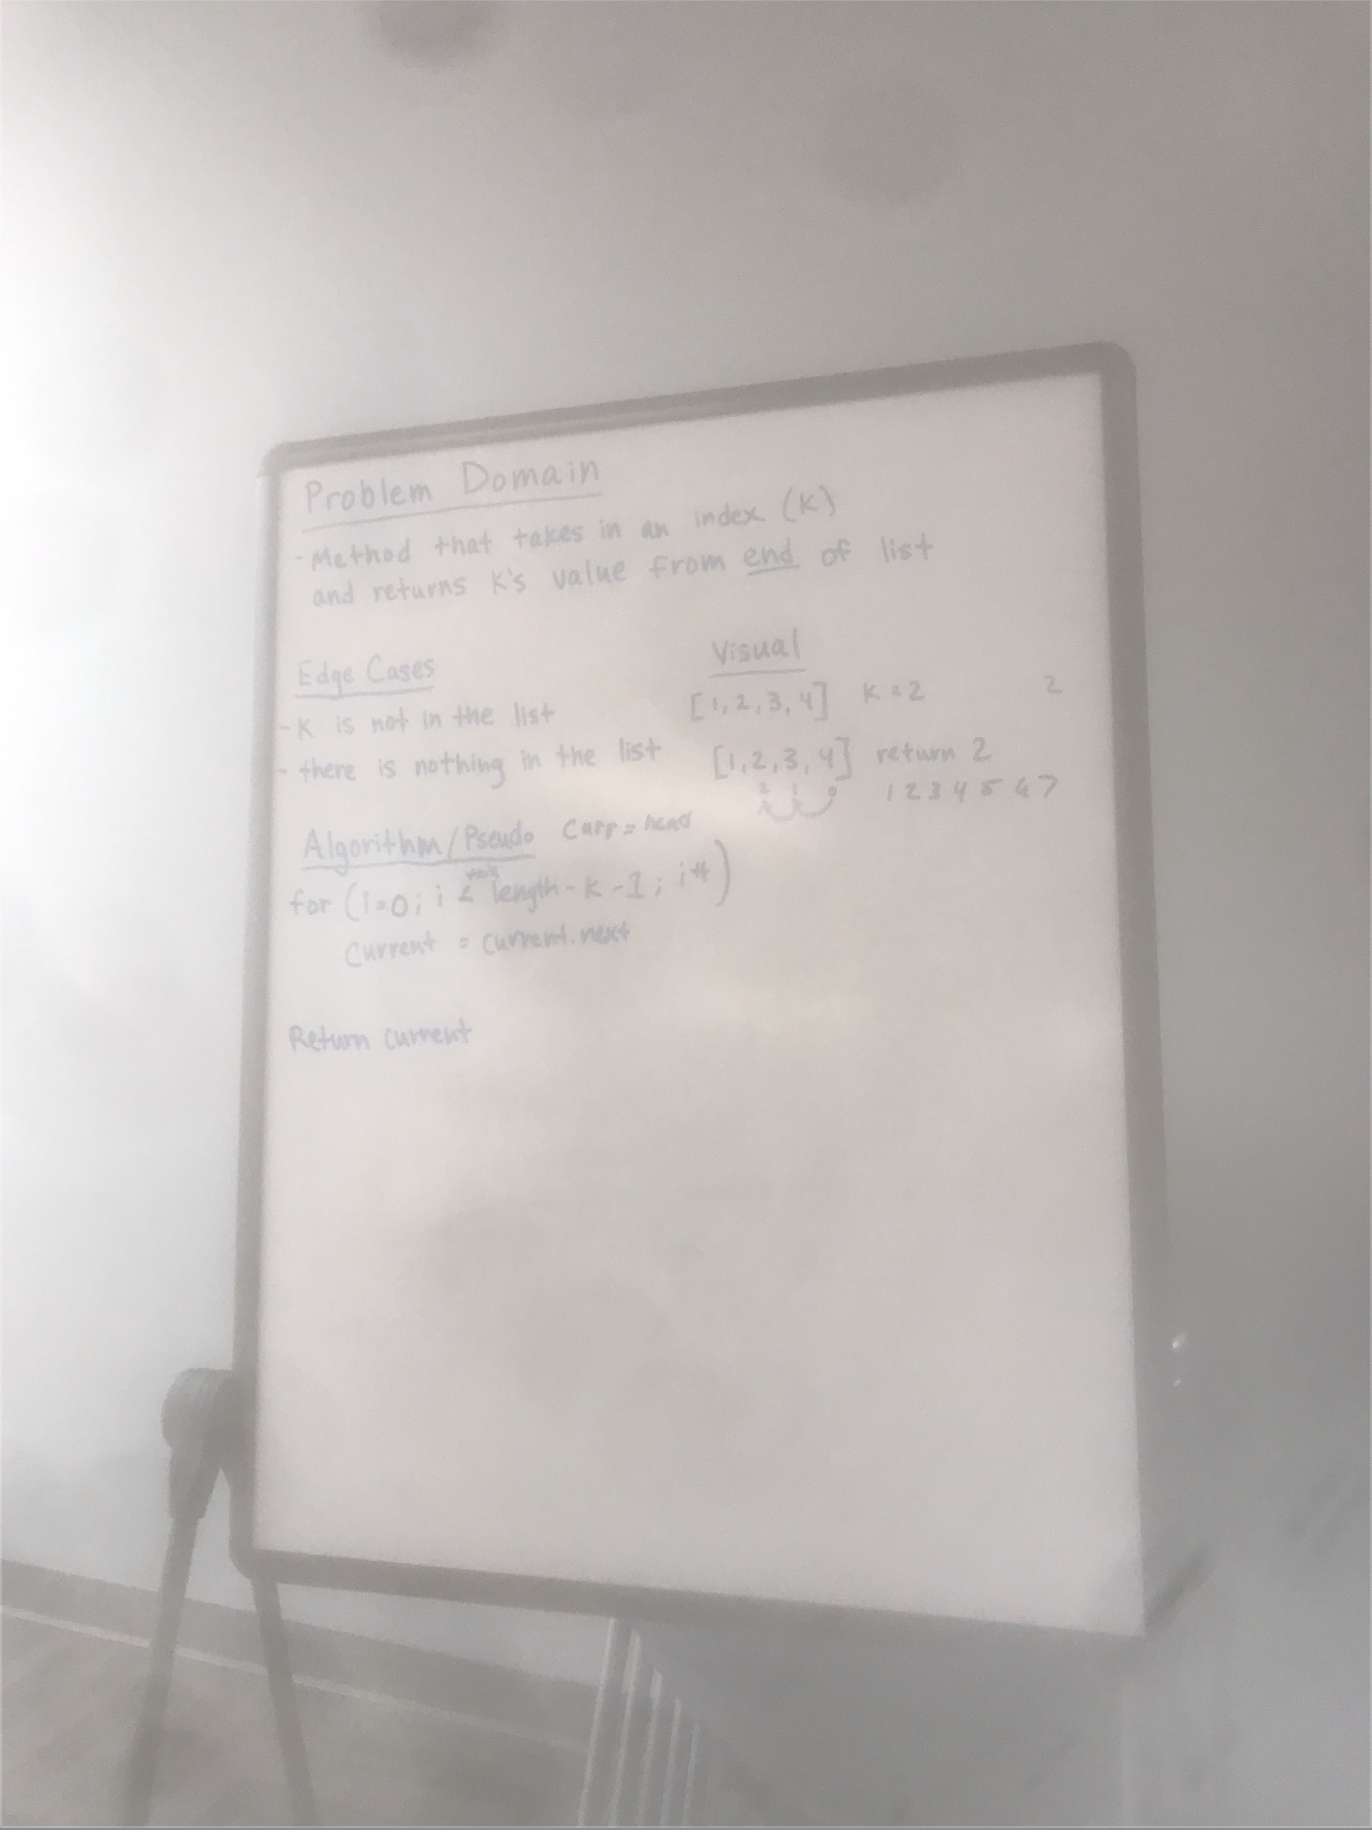 Problem Domain
- Method that takes in an index (K)
and returns K's value from end of list
Edge Cases
- K is not in the list
- there is nothing in the list
Visual
[1, 2, 3, 4] K = 2
2
[1, 2, 3, 4] return 2
2 1 0
1 2 3 4 5 6 7
Algorithm/Pseudo Curr = head
for (i=0; i < length - k - 1; i++)
Current = current.next
Return current